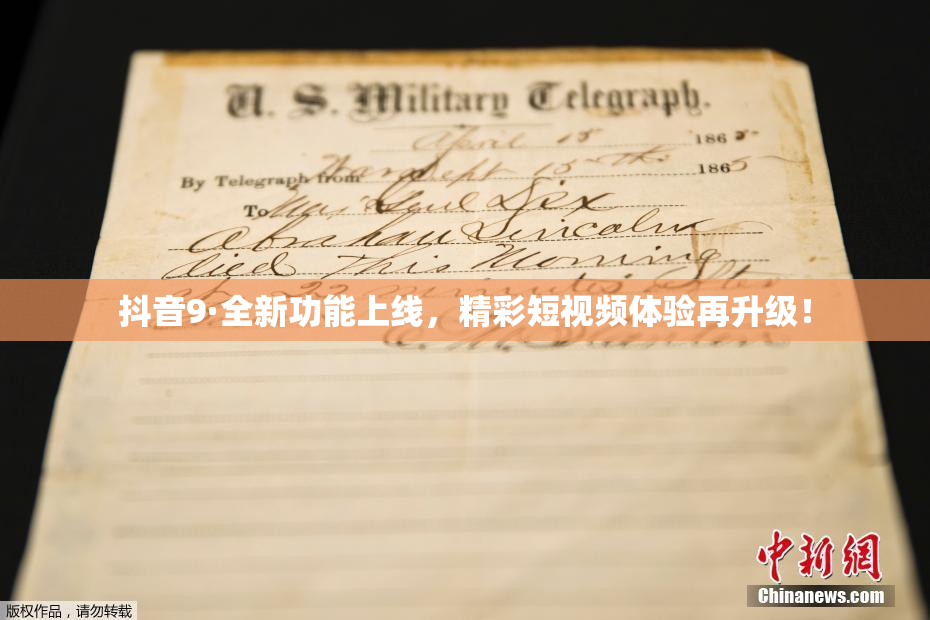 U. S. Military Telegraph.
April 15 1865
By Telegraph from War Dept 15th 1865
To Maj Genl Dix
Abraham Lincoln
died This Morning
22 minutes after
抖音9·全新功能上线，精彩短视频体验再升级！
E. M. Stanton
中新網
Chinanews.com
版权作品，请勿转载